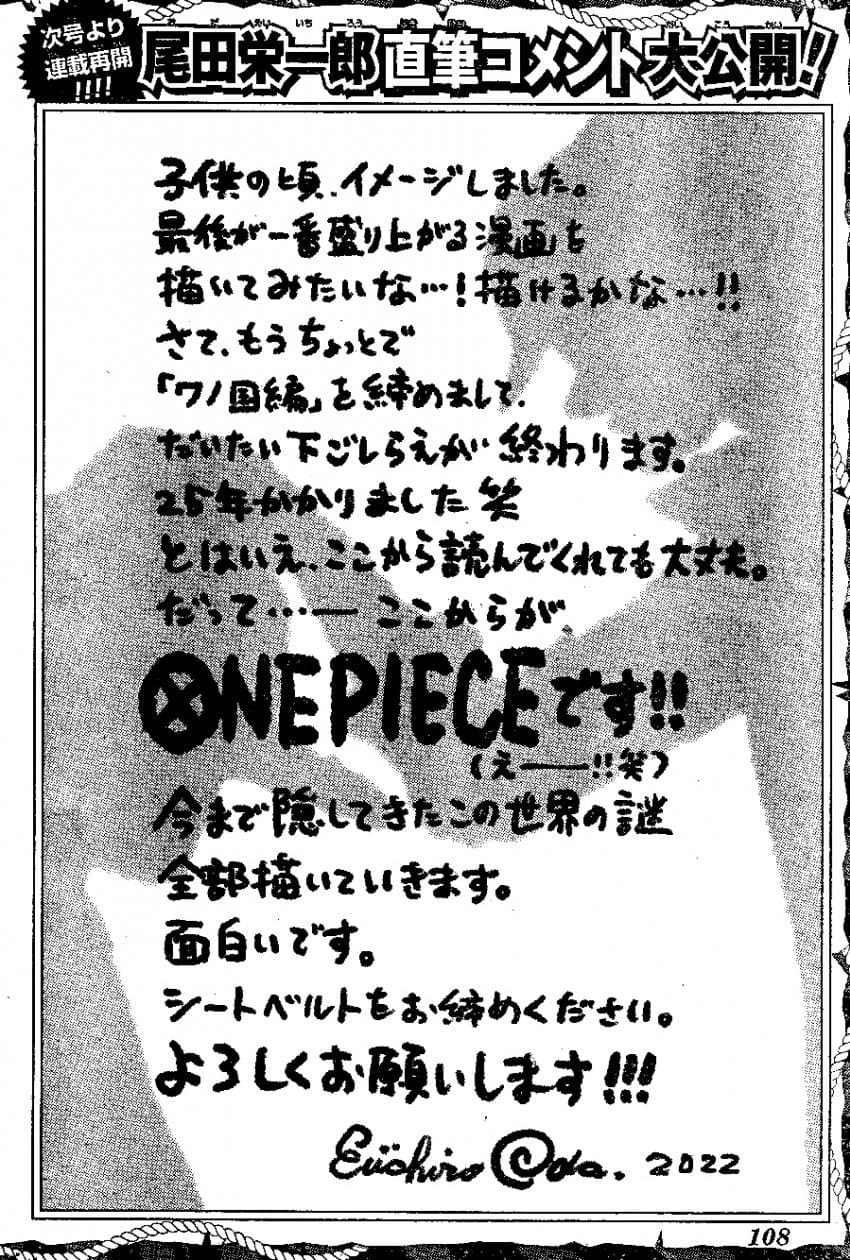 次号より
連載再開
!!!!
尾田栄一郎直筆コメント大公開!
お だ えい いち ろう じき ひつ だい こう かい
子供の頃、イメージしました。
最後が一番盛り上がる漫画を
描いてみたいな…!描けるかな…!!
さて、もうちょっとで
「ワノ国編」を締めまして、
だいたい下ごしらえが終わります。
25年かかりました 笑
とはいえ、ここから読んでくれても大丈夫。
だって…―ここからが、
ONE PIECEです!!
(え――!!笑)
今まで隠してきたこの世界の謎
全部描いていきます。
面白いです。
シートベルトをお締めください。
よろしくお願いします!!!
Eiichiro Oda. 2022
108